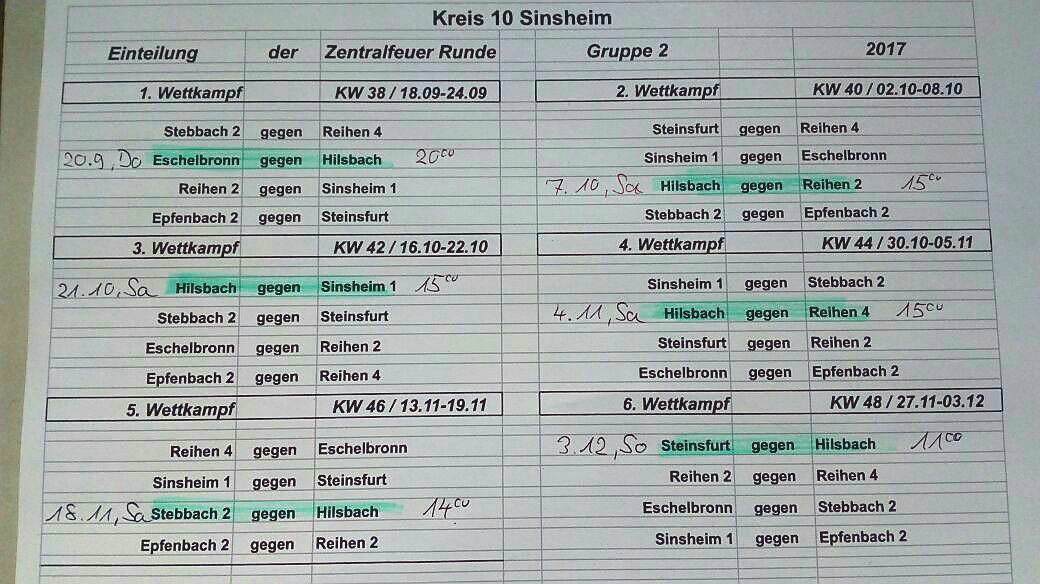 Kreis 10 Sinsheim
Einteilung der Zentralfeuer Runde Gruppe 2 2017
1. Wettkampf KW 38 / 18.09-24.09
Stebbach 2 gegen Reihen 4
20.9, Do Eschelbronn gegen Hilsbach 20⁰⁰
Reihen 2 gegen Sinsheim 1
Epfenbach 2 gegen Steinsfurt
2. Wettkampf KW 40 / 02.10-08.10
Steinsfurt gegen Reihen 4
Sinsheim 1 gegen Eschelbronn
7.10, Sa Hilsbach gegen Reihen 2 15⁰⁰
Stebbach 2 gegen Epfenbach 2
3. Wettkampf KW 42 / 16.10-22.10
21.10, Sa Hilsbach gegen Sinsheim 1 15⁰⁰
Stebbach 2 gegen Steinsfurt
Eschelbronn gegen Reihen 2
Epfenbach 2 gegen Reihen 4
4. Wettkampf KW 44 / 30.10-05.11
Sinsheim 1 gegen Stebbach 2
4.11, Sa Hilsbach gegen Reihen 4 15⁰⁰
Steinsfurt gegen Reihen 2
Eschelbronn gegen Epfenbach 2
5. Wettkampf KW 46 / 13.11-19.11
Reihen 4 gegen Eschelbronn
Sinsheim 1 gegen Steinsfurt
18.11, Sa Stebbach 2 gegen Hilsbach 14⁰⁰
Epfenbach 2 gegen Reihen 2
6. Wettkampf KW 48 / 27.11-03.12
3.12, So Steinsfurt gegen Hilsbach 11⁰⁰
Reihen 2 gegen Reihen 4
Eschelbronn gegen Stebbach 2
Sinsheim 1 gegen Epfenbach 2